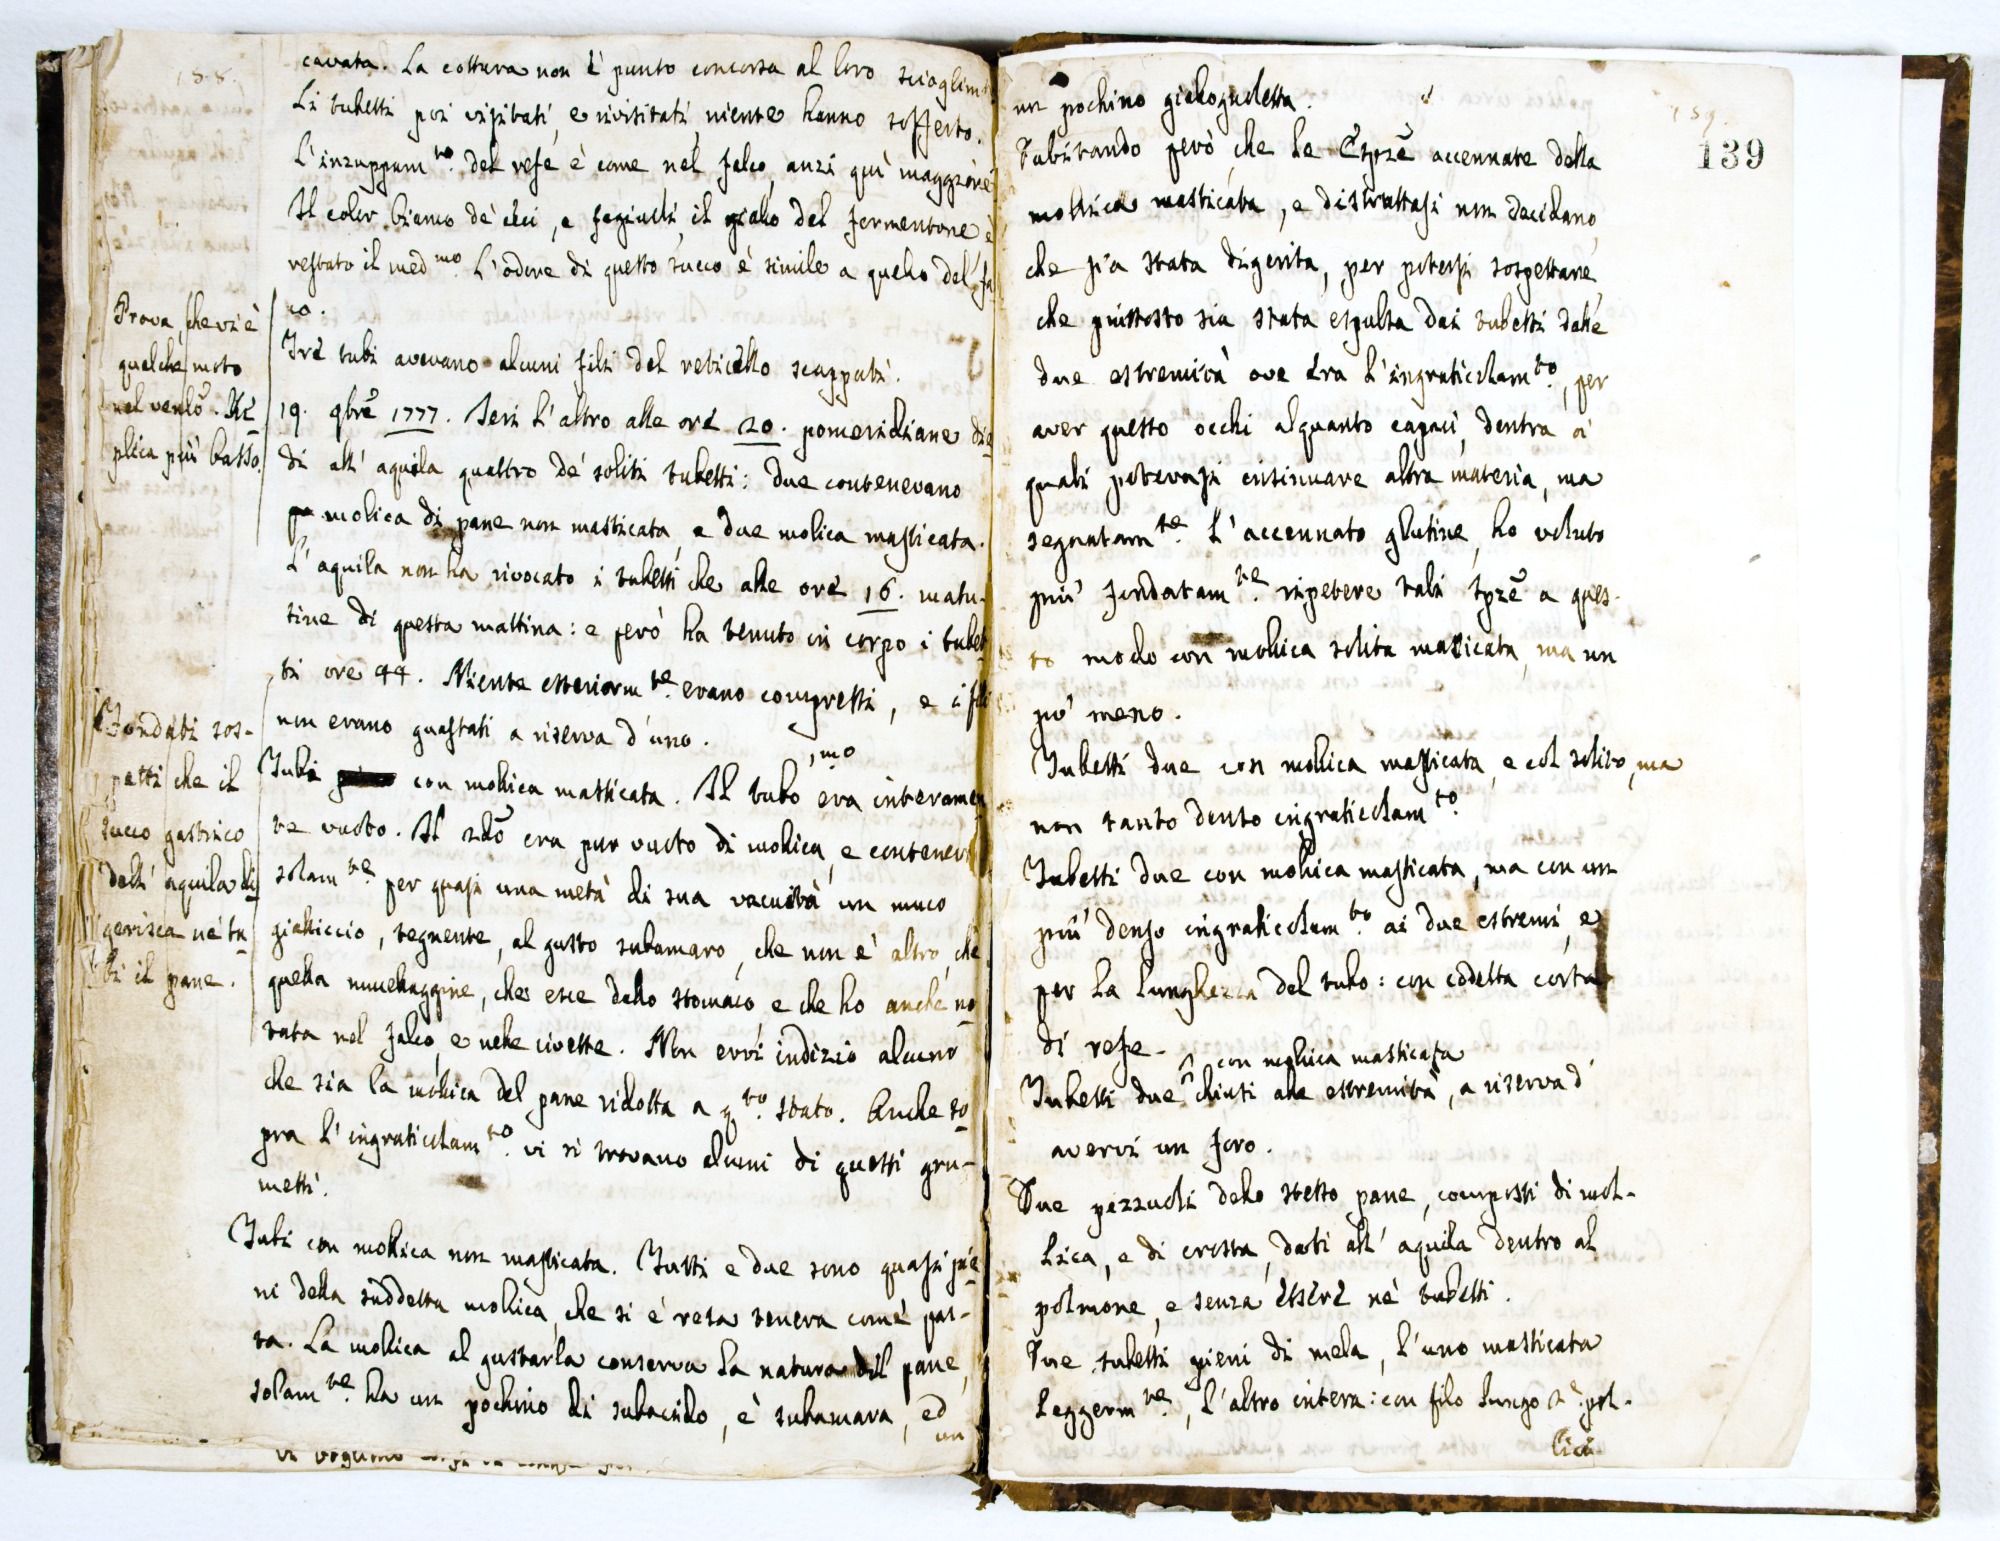 158.
cavata. La cottura non è punto concorsa al loro scioglim
Li tubetti poi visitati, e rivisitati niente hanno sofferto.
L'inzuppam.to del refe è come nel falco, anzi quì maggiore
Il color bianco de' ceci, e fagiuoli, il giallo del formentone è
restato il med.mo L'odore di questo succo è simile a quello del fa
co.
Prova, che vi è
qualche moto
nel ventõ. Re=
plica più basso.
Tre tubi avevano alcuni fili del reticello scappati.
19. 9brẽ 1777. Ieri l'altro alle ore 20. pomeridiane die=
di all'aquila quattro de' soliti tubetti: due contenevano
molica di pane non masticata, e due molica masticata.
L'aquila non ha rivocato i tubetti che alle ore 16. matu-
tine di questa mattina: e però ha tenuto in corpo i tubet=
ti ore 44. Niente esteriorm.te erano compressi, e i fili
non erano guastati a riserva d'uno.
Fondati sos-
petti che il
succo gastrico
dell'aquila di=
gerisca ne' tu=
bi il pane.
Tubi con mollica masticata. Il tubo 1.mo era interamen
te vuoto. Il 2dõ era pur vuoto di mollica, e conteneva
solam.te per quasi una metà di sua vacuità un muco
gialliccio, tegnente, al gusto subamaro, che non è altro, che
quella mucellaggine, che esce dallo stomaco e che ho anche no=
tata nel falco, e nelle civette. Non evvi indizio alcuno
che sia la mollica del pane ridotta a q.to stato. Anche so=
pra l'ingraticolam.to vi si trovano alcuni di questi gru-
metti.
Tubi con mollica non masticata. Tutti e due sono quasi pie=
ni della suddetta mollica, che si è resa tenera come pas-
ta. La mollica al gustarla conserva la natura del pane,
solam.te ha un pochino di subacido, è subamara, ed
un
159.
139
un pochino gialloguoletta.
Dubitando però che le Espzẽ accennate della
mollica masticata, e distruttasi non decidano,
che sia stata digerita, per potersi sospettare
che piuttosto sia stata espulsa dai tubetti dalle
due estremità ove era l'ingraticolam.to, per
aver questo occhi alquanto capaci, dentro ai
quali potevasi insinuare altra materia, ma
segnatam.te l'accennato glutine, ho voluto
più fondatam.te ripetere tali Spzẽ a ques-
to modo con mollica solita masticata, ma un
po' meno.
Tubetti due con mollica masticata, e col solito, ma
non tanto dento ingraticolam.to
Tubetti due con mollica masticata, ma con un
più denso ingraticolam.to ai due estremi, e
per la lunghezza del tubo: con codetta corta
di refe.
con mollica masticata
Tubetti due ^ chiusi alle estremità, a riserva d'
avervi un foro.
Due pezzuoli dello stesso pane, composti di mol-
lica, e di crosta, dati all'aquila dentro al
polmone, e senza essere ne' tubetti.
Due tubetti pieni di mela, l'uno masticata
leggerm.te, l'altro intera: con filo lungo 2. pol-
lici